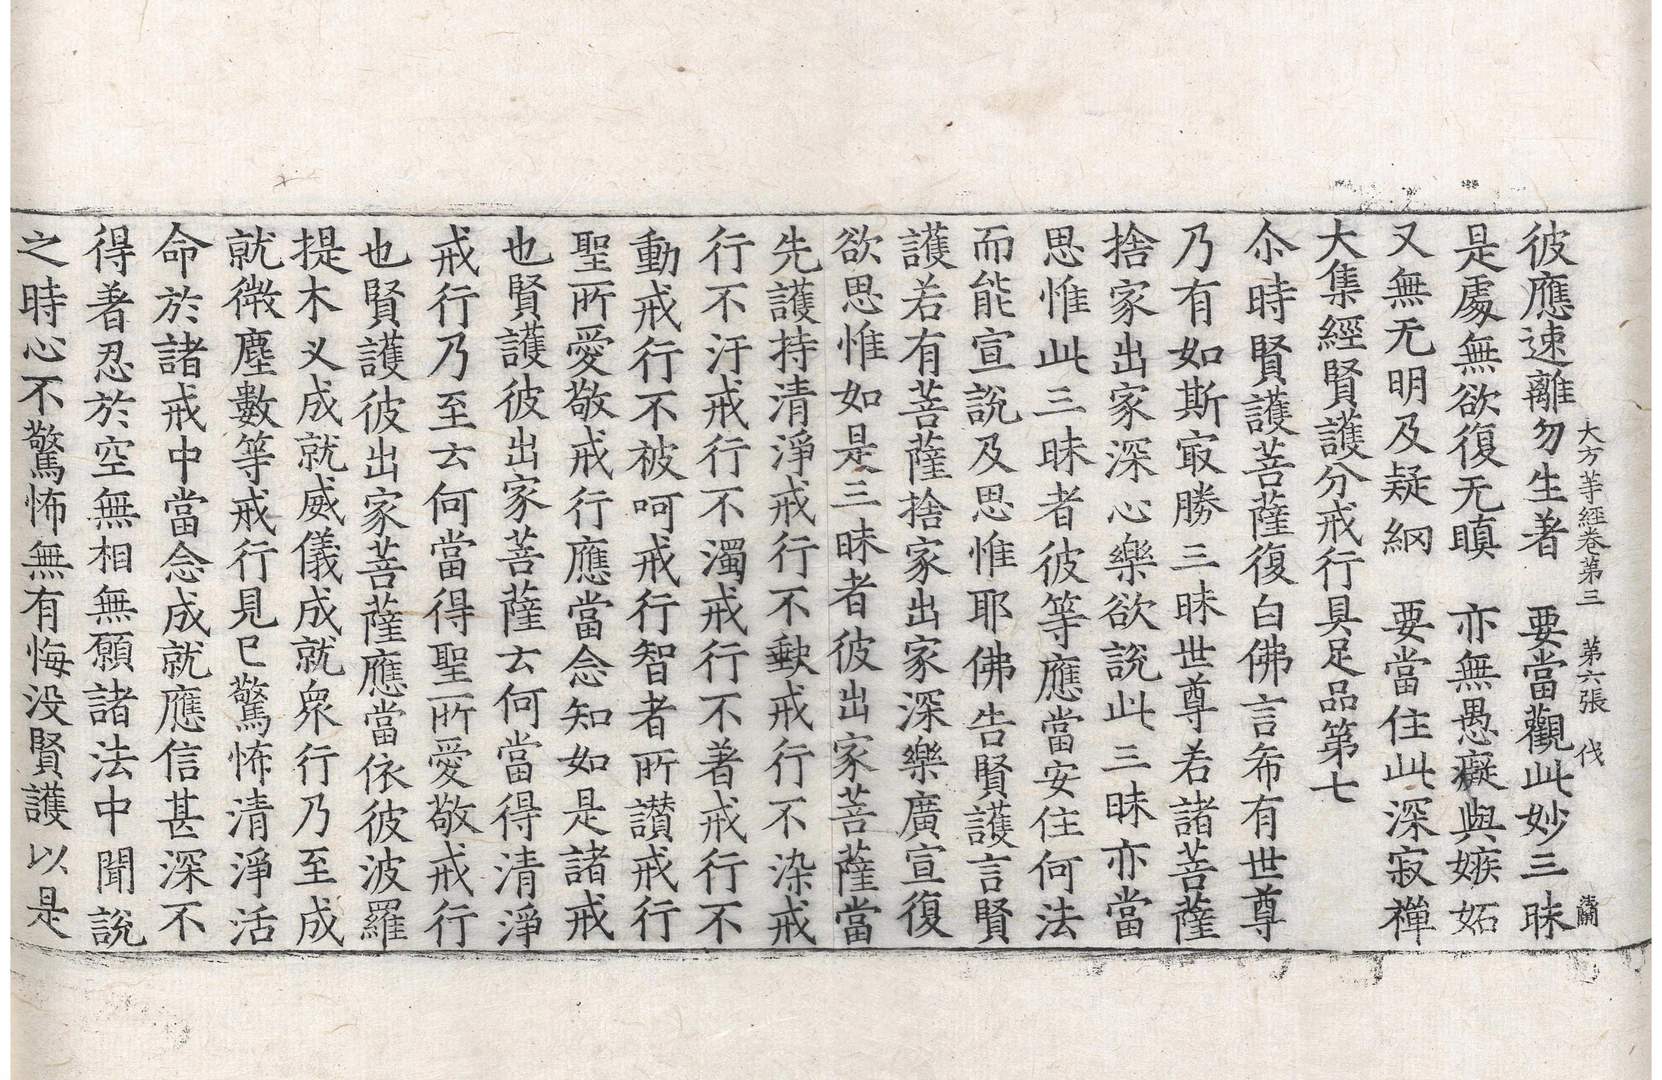 大方等經卷第三　第六張　伐
彼應速離勿生著　要當觀此妙三昧
是處無欲復无瞋　亦無愚癡與嫉妬
又無无明及疑網　要當住此深寂禪
大集經賢護分戒行具足品第七
尒時賢護菩薩復白佛言希有世尊
乃有如斯㝡勝三昧世尊若諸菩薩
捨家出家深心樂欲說此三昧亦當
思惟此三昧者彼等應當安住何法
而能宣說及思惟耶佛告賢護言賢
護若有菩薩捨家出家深樂廣宣復
欲思惟如是三昧者彼出家菩薩當
先護持清淨戒行不缺戒行不染戒
行不汙戒行不濁戒行不著戒行不
動戒行不被呵戒行智者所讃戒行
聖所愛敬戒行應當念知如是諸戒
也賢護彼出家菩薩云何當得清淨
戒行乃至云何當得聖所愛敬戒行
也賢護彼出家菩薩應當依彼波羅
提木义成就威儀成就衆行乃至成
就微塵數等戒行見已驚怖清淨活
命於諸戒中當念成就應信甚深不
得著忍於空無相無願諸法中聞說
之時心不驚怖無有悔没賢護以是